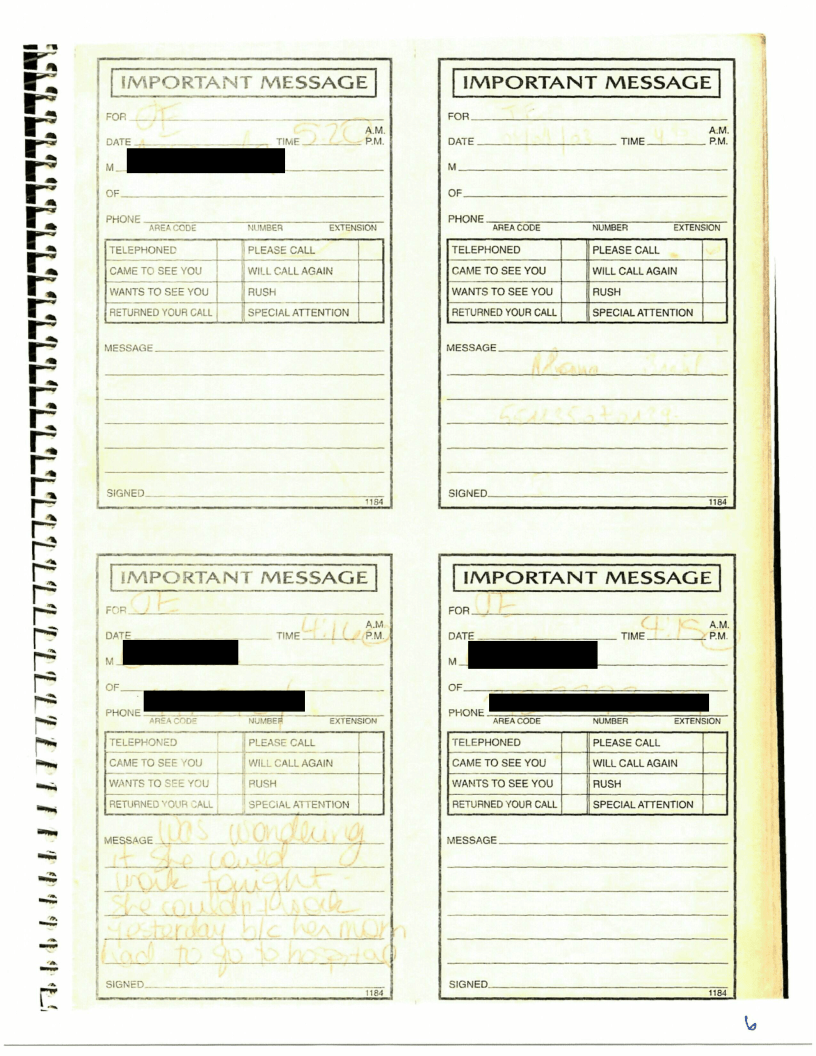 IMPORTANT MESSAGE
FOR JE
A.M.
DATE TIME 5:20 P.M.
M
OF
PHONE
AREA CODE NUMBER EXTENSION
TELEPHONED PLEASE CALL
CAME TO SEE YOU WILL CALL AGAIN
WANTS TO SEE YOU RUSH
RETURNED YOUR CALL SPECIAL ATTENTION
MESSAGE
SIGNED
1184
IMPORTANT MESSAGE
FOR JE
A.M.
DATE TIME P.M.
M
OF
PHONE
AREA CODE NUMBER EXTENSION
TELEPHONED PLEASE CALL
CAME TO SEE YOU WILL CALL AGAIN
WANTS TO SEE YOU RUSH
RETURNED YOUR CALL SPECIAL ATTENTION
MESSAGE
SIGNED
1184
IMPORTANT MESSAGE
FOR JE
A.M.
DATE TIME 4:16 P.M.
M
OF
PHONE
AREA CODE NUMBER EXTENSION
TELEPHONED PLEASE CALL
CAME TO SEE YOU WILL CALL AGAIN
WANTS TO SEE YOU RUSH
RETURNED YOUR CALL SPECIAL ATTENTION
MESSAGE Was wondering
if she could
work tonight -
She couldn't work
yesterday b/c her mom
had to go to hospital
SIGNED
1184
IMPORTANT MESSAGE
FOR JE
A.M.
DATE TIME 4:15 P.M.
M
OF
PHONE
AREA CODE NUMBER EXTENSION
TELEPHONED PLEASE CALL
CAME TO SEE YOU WILL CALL AGAIN
WANTS TO SEE YOU RUSH
RETURNED YOUR CALL SPECIAL ATTENTION
MESSAGE
SIGNED
1184
6